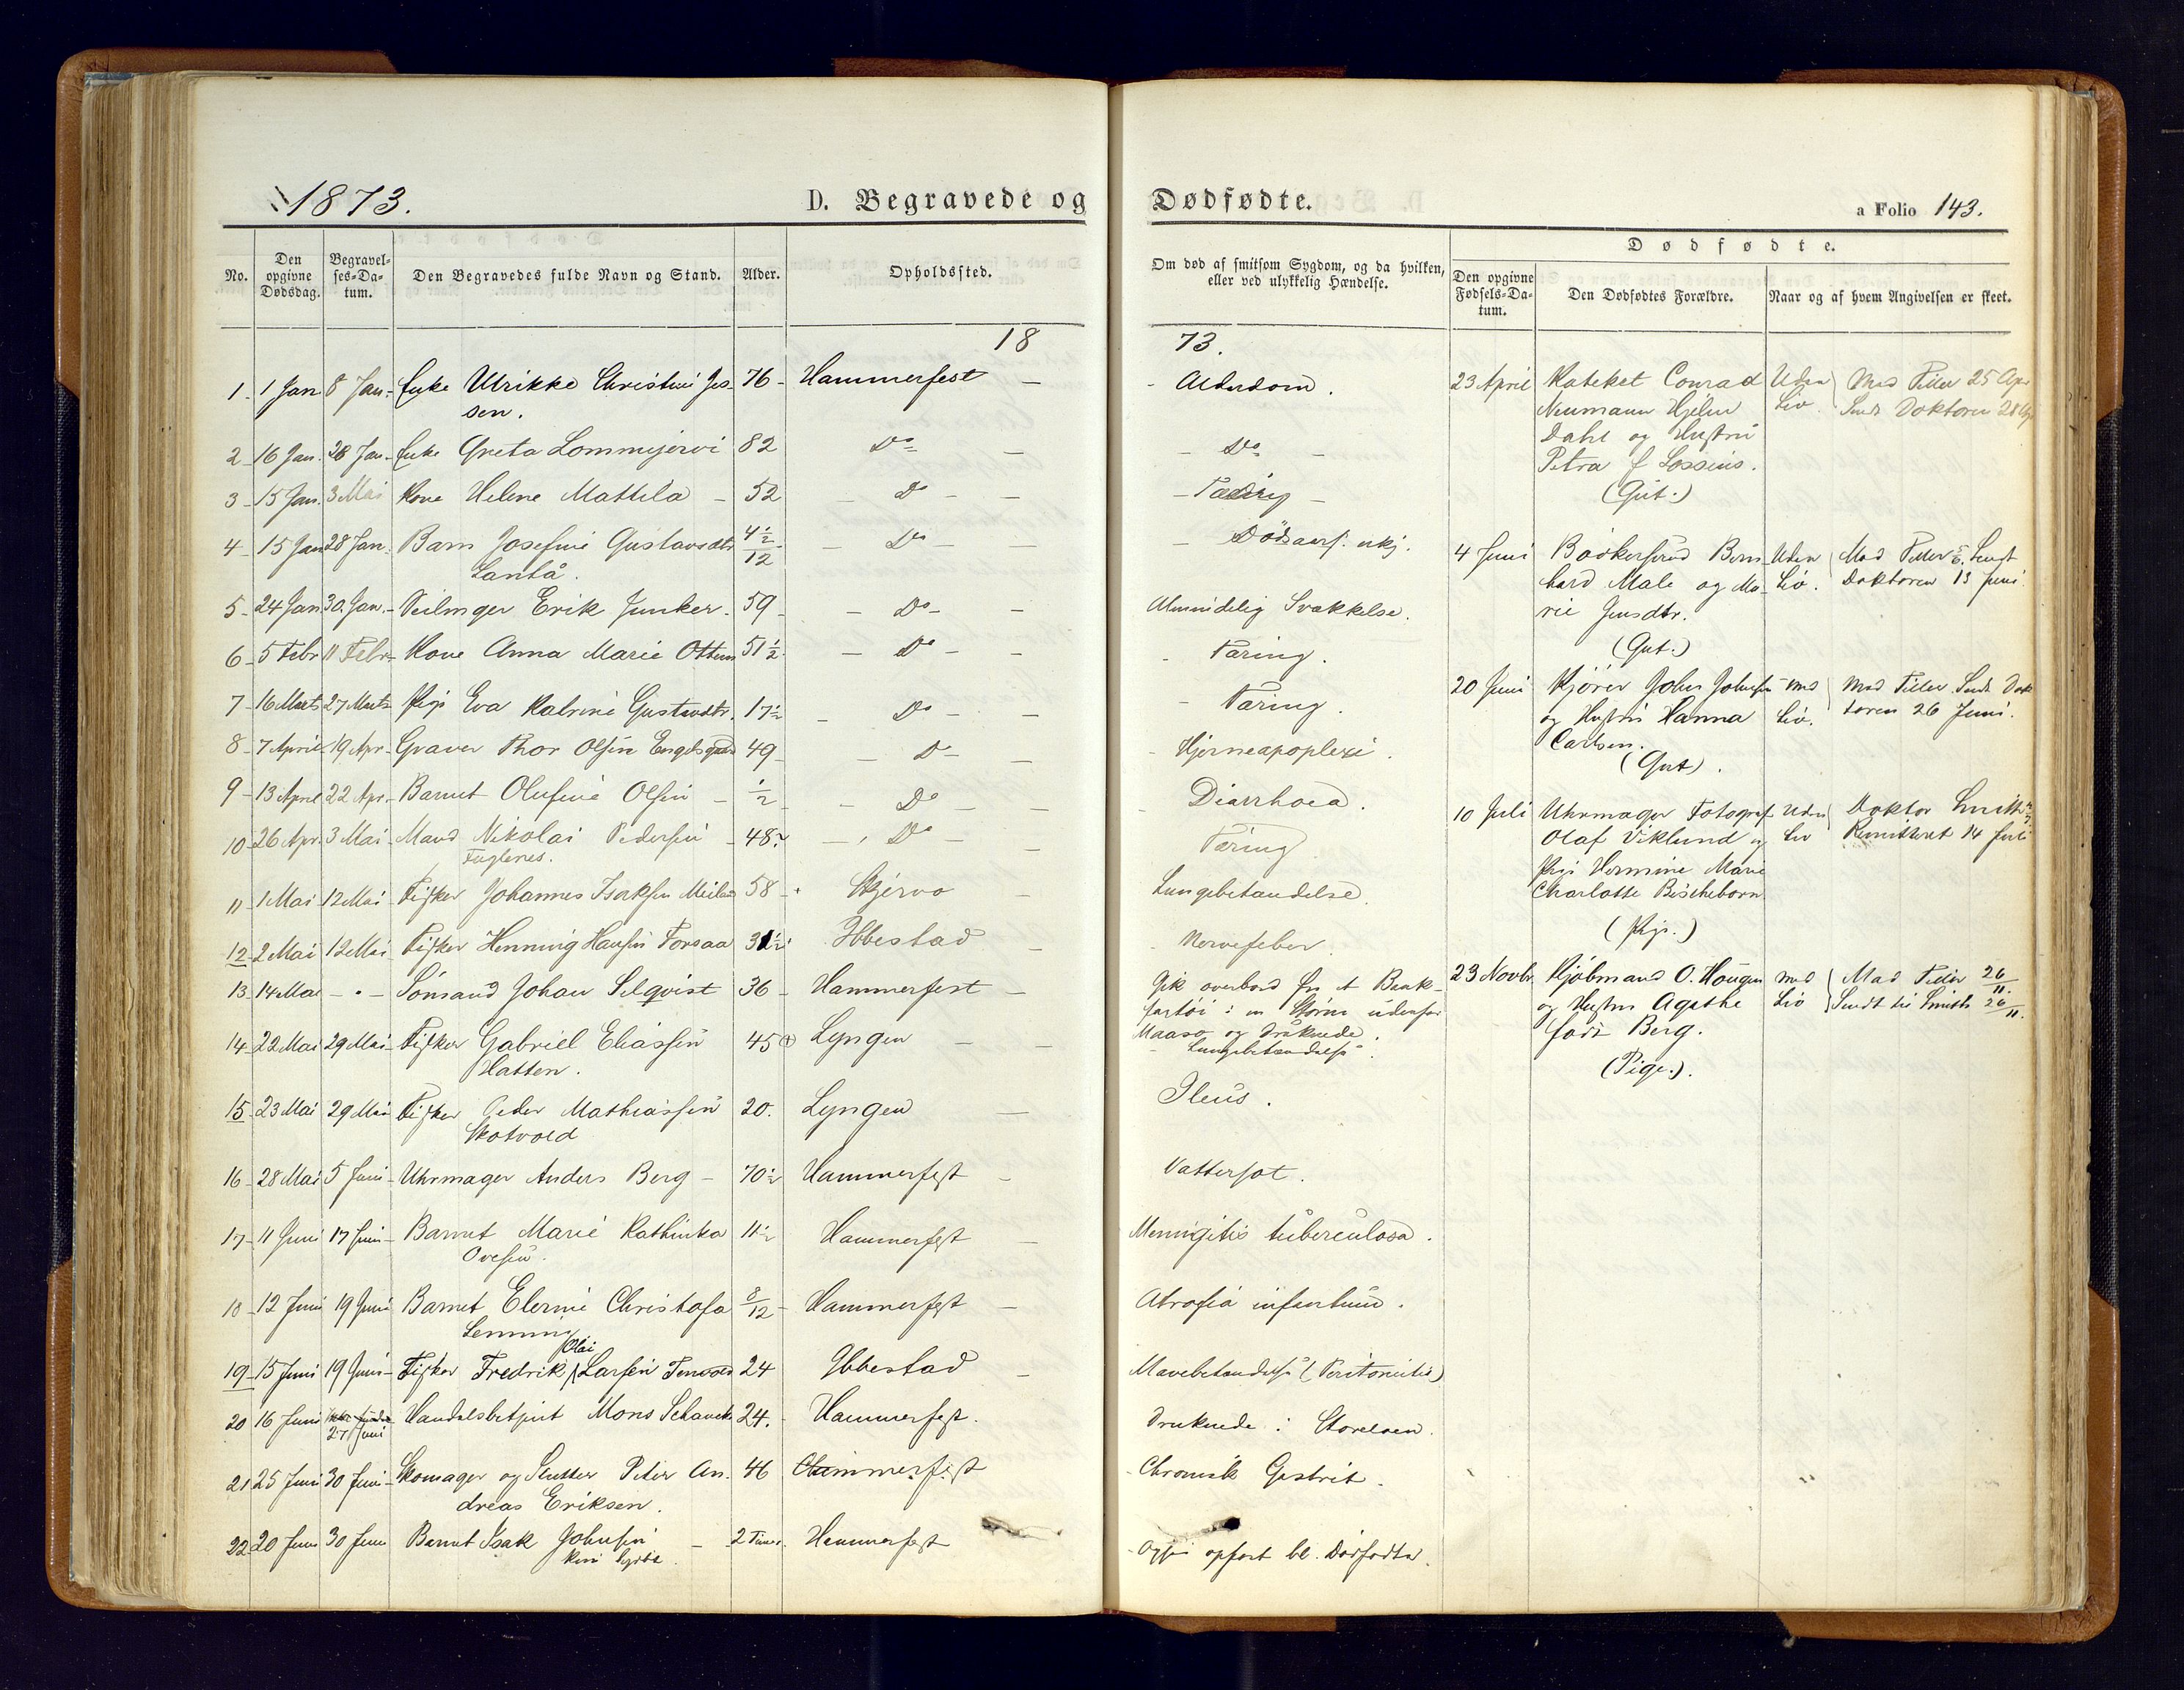 1873.
D. Begravede og Dødfødte.
a Folio 143.
No.
Den opgivne Dødsdag.
Begravelses-Datum.
Den Begravedes fulde Navn og Stand.
Alder.
Opholdssted.
Om død af smitsom Sygdom, og da hvilken, eller ved ulykkelig Hændelse.
Dødfødte.
Den opgivne Fødsels-Datum.
Den Dødfødtes Forældre.
Naar og af hvem Angivelsen er skeet.
18 73.
1 1 Jan 8 Jan. Enke Ulrikke Christine Jes- 76 Hammerfest — Alderdom.
sen.
2 16 Jan. 28 Jan. Enke Greta Lommijervi 82 Do — Do —
3 15 Jan. 3 Mai Kone Helene Mattila 52 — Do — Tæring —
4 15 Jan 28 Jan. Barn Josefine Gustavsdtr 4½/12 — Do — Dödsaars. ukj.
Lantå.
5 24 Jan 30. Jan. Seilmager Erik Junker 59 — Do — Almindelig Svækkelse.
6 5 Febr 11 Febr Kone Anna Marie Ottesen 51½ — Do — Tæring.
7 16 Marts 27 Marts Pige Eva Katrine Gustavdtr. 17½ — Do — Tæring.
8 7 April 19 Apr. Graver Thor Olsen 49 — D — Hjerneapoplexi.
9 13 April 22 Apr. Barnet Olufine Olsen ½ — Do — Diarrhoea.
10 26 Apr. 3 Mai Mand Nikolai Pedersen 48½ — Do — Tæring
Fuglenes.
11 1 Mai 12 Mai Fisker Johannes Isaksen 58 Skjervø Lungebetændelse.
12 2 Mai 12 Mai Fisker Henning Hansen Forsaa 31½ Ibbestad — Nervefeber
13 14 Mai - " - Sömand Johan Selqvist 36 Hammerfest — Gik overbord fra et
fartöi i en Storm udenfor
Maasø og druknede.
14 22 Mai 29 Mai Fisker Gabriel Eliassen 45 Lyngen — Lungebetændelse.
Hatten.
15 23 Mai 29 Mai Fisker Peder Mathiassen 20. Lyngen — Ileus.
Skotvold
16 28 Mai 5 Juni Uhrmager Anders Berg 70½ Hammerfest — Vattersot.
17 11 Juni 17 Juni Barnet Marie Kathinka 11½ Hammerfest — Meningitis tuberculosa.
Ovesen.
18 12 Juni 19 Juni Barnet Elernie Christofa 8/12 Hammerfest — Atrofia infantum.
Lemming
Olai
19 15 Juni 19 Juni Fisker Fredrik Larsen 24 Ibbestad — Mavebetændelse (Peritonitis)
20 16 Juni 27 Juni Handelsbetjent Mons Schanck 24. Hammerfest. Druknede i Storelven.
21 25 Juni 30 Juni Skomager og Slutter Peter An- 46 Hammerfest Chronisk Gastrit.
dreas Eriksen.
22 20 Juni 30 Juni Barnet Isak Johnsen 2 Timer. Hammerfest Ogsaa opført bl. Dødfødte.
23 April Kateket Conrad Uden Mad Tiller 25 Apr
Neumann Hjelm Liv. Sendt Doktoren 28 Apr
Dahl og Hustru
Petra f Lossius.
(Gut.)
4 Juni Bødkersvend Bern- Uden Mad Tiller
hard Male og Ma- Liv. Doktoren 13 Juni.
rie Jensdtr.
(Gut.)
20 Juni Kjører John Johnsen Med Mad Tiller Sendt Dok-
og Hustru Hanna Liv. toren 26 Juni.
Carlsen.
(Gut).
10 Juli Uhrmager Fotograf Uden Doktor Smith
Olaf Viklund og Liv Remitteret 14 Juli
Pige Hermine Marie
Charlotte
(Pige.)
23 Novbr. Kjøbmand O. Hougen Med Mad Tiller 26/11.
og Hustru Agathe Liv Sendt til Smith 26/11.
født Berg.
(Pige.).